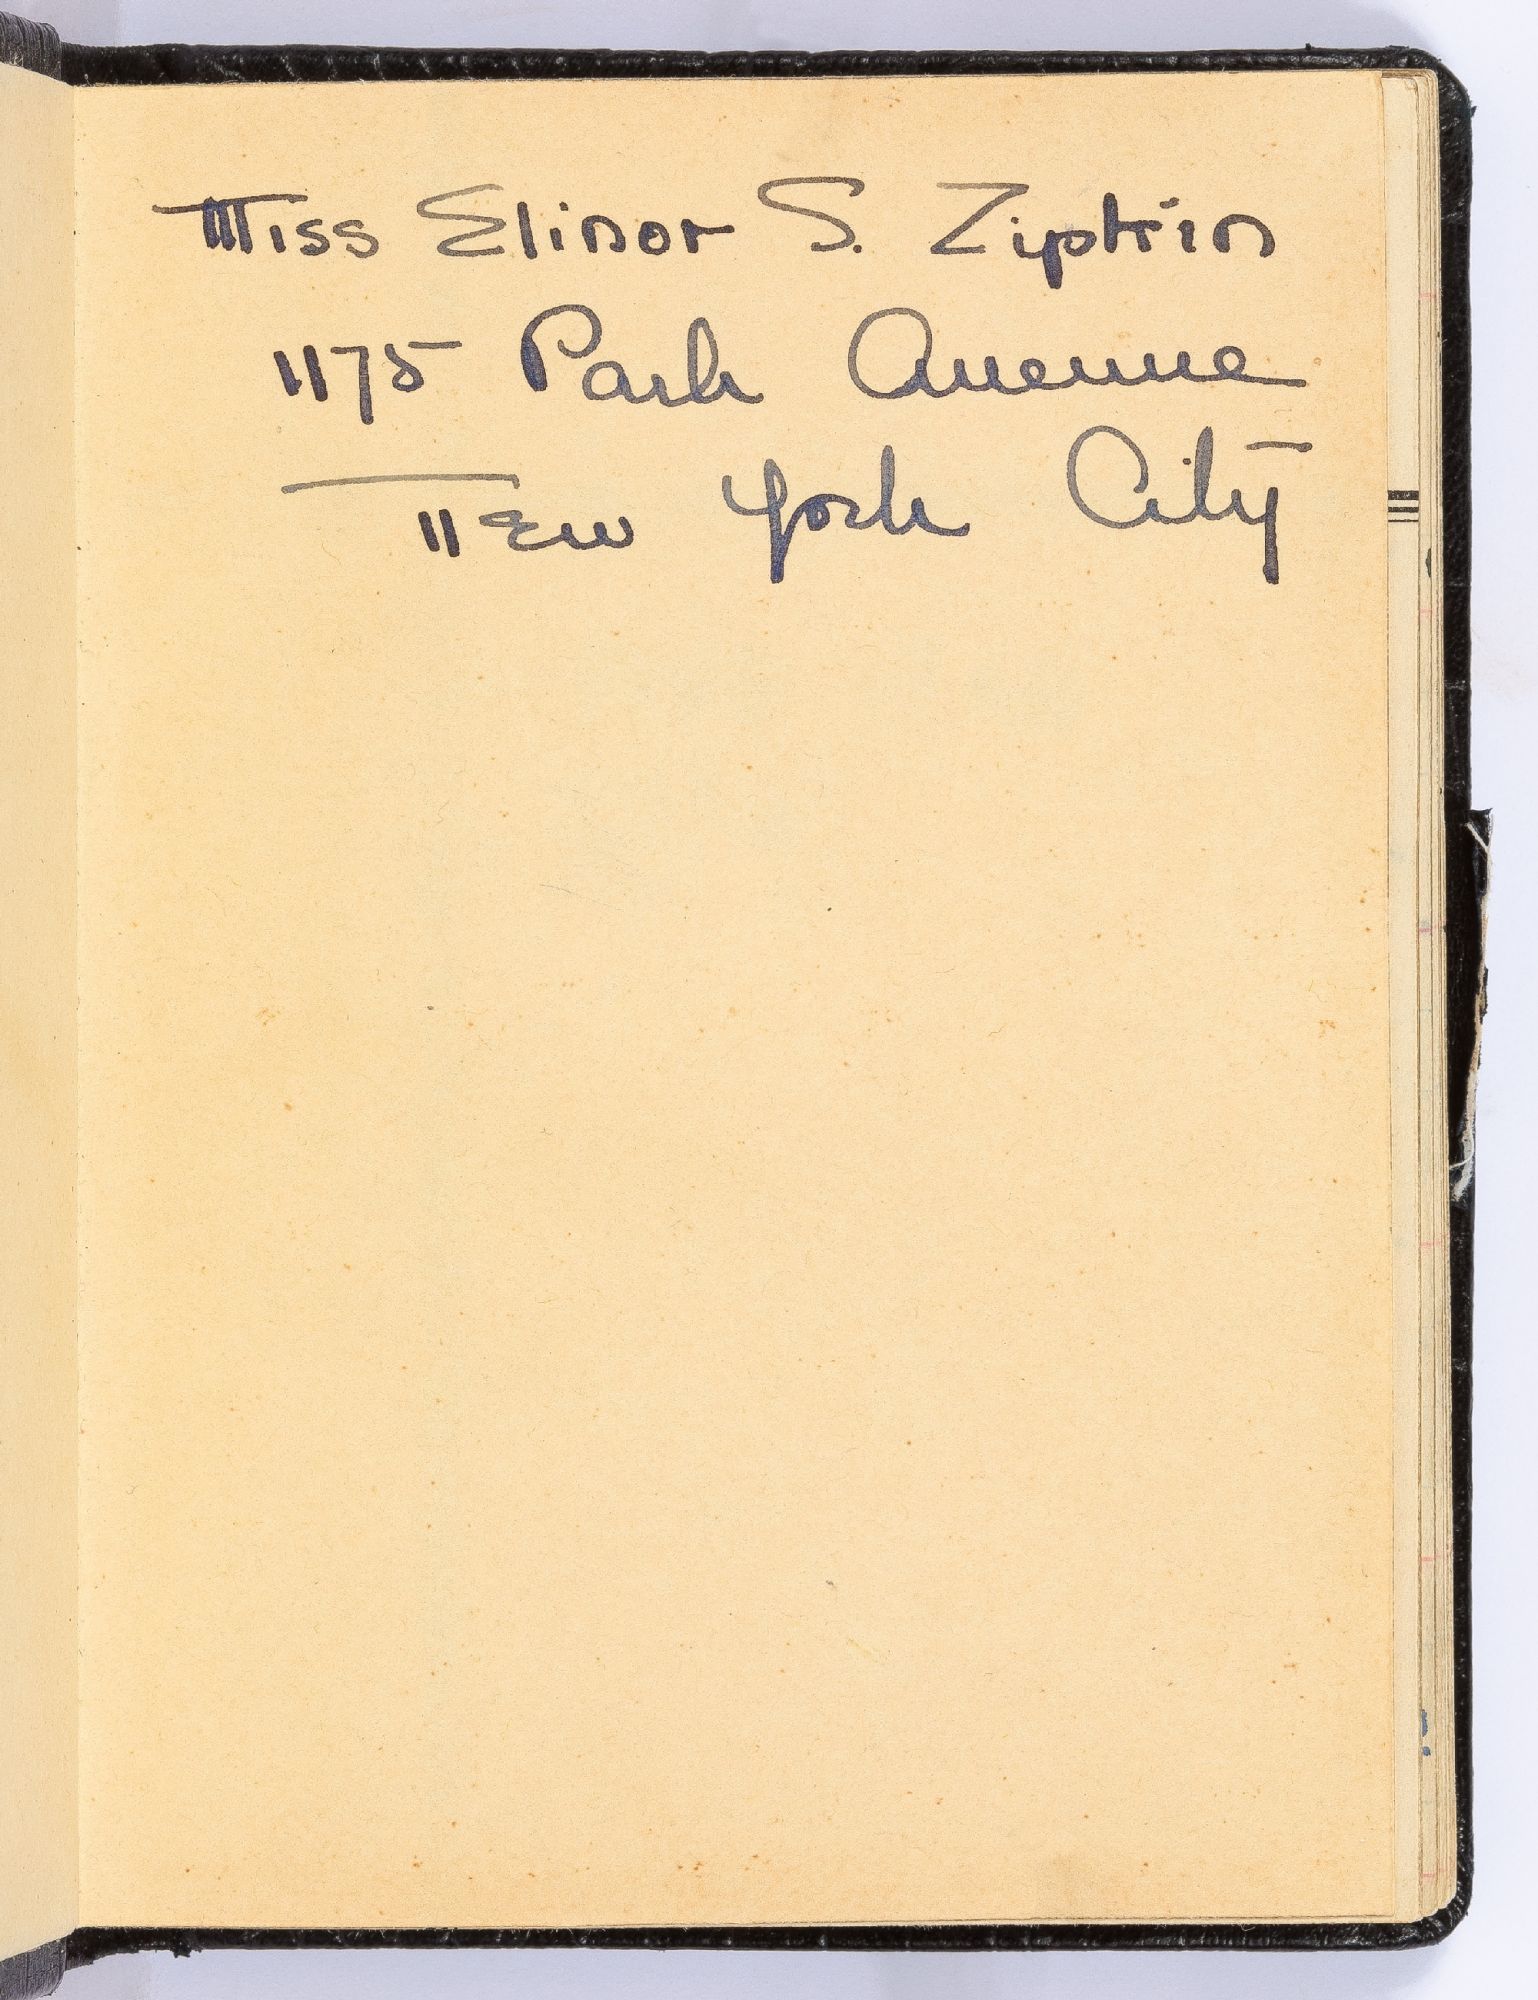 Miss Elinor S. Zipkin
1175 Park Avenue
New York City